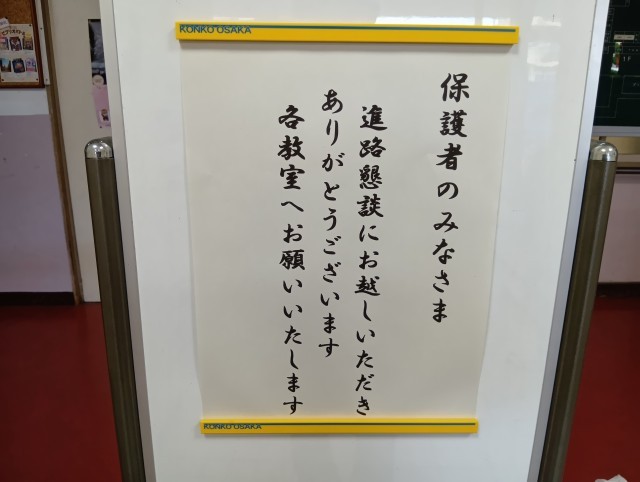 KONKO OSAKA
保護者のみなさま
進路懇談にお越しいただき
ありがとうございます
各教室へお願いいたします
KONKO OSAKA